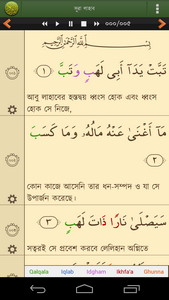 সূরা লাহাব
000/005
بِسْمِ اللَّهِ الرَّحْمَٰنِ الرَّحِيمِ
تَبَّتْ يَدَآ أَبِي لَهَبٍ وَتَبَّ ﴿١﴾
আবু লাহাবের হস্তদ্বয় ধ্বংস হোক এবং ধ্বংস
হোক সে নিজে,
مَآ أَغْنَىٰ عَنْهُ مَالُهُۥ وَمَا كَسَبَ
﴿٢﴾
কোন কাজে আসেনি তার ধন-সম্পদ ও যা সে
উপার্জন করেছে।
سَيَصْلَىٰ نَارًا ذَاتَ لَهَبٍ ﴿٣﴾
সত্বরই সে প্রবেশ করবে লেলিহান অগ্নিতে
Qalqala Iqlab Idgham Ikhfa'a Ghunna